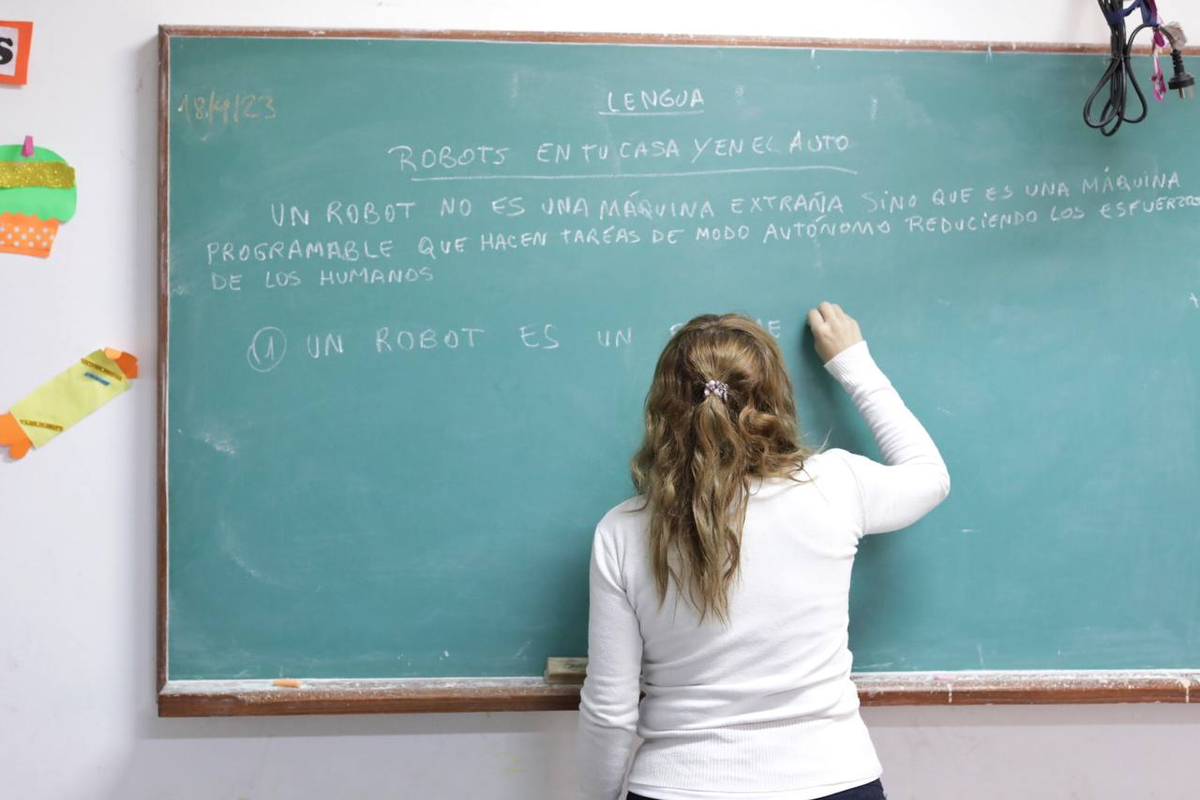 S
18/4/23
LENGUA
ROBOTS EN TU CASA Y EN EL AUTO
UN ROBOT NO ES UNA MÁQUINA EXTRAÑA SINO QUE ES UNA MÁQUINA
PROGRAMABLE QUE HACEN TARÉAS DE MODO AUTÓNOMO REDUCIENDO LOS ESFUERZOS
DE LOS HUMANOS
1 UN ROBOT ES UN